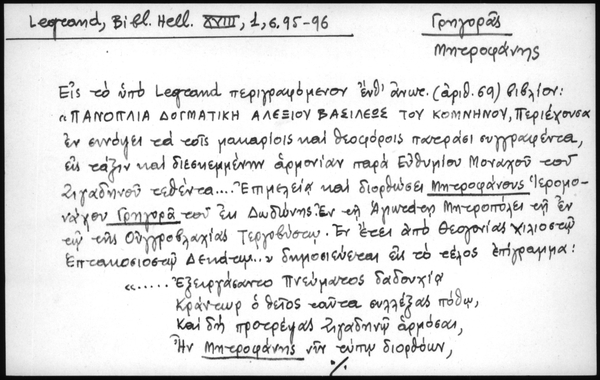 Legrand, Bibl. Hell. XVIII, 1, σ. 95-96
Γρηγορᾶς
Μητροφάνης
Εἰς τὸ ὑπὸ Legrand περιγραφόμενον ἐνθ' ἀνωτ. (ἀριθ. 69) βιβλίον:
« ΠΑΝΟΠΛΙΑ ΔΟΓΜΑΤΙΚΗ ΑΛΕΞΙΟΥ ΒΑΣΙΛΕΩΣ ΤΟΥ ΚΟΜΝΗΝΟΥ, Περιέχουσα
ἐν συνόψει τὰ τοῖς μακαρίοις καὶ θεοφόροις πατράσι συγγραφέντα,
εἰς τάξιν καὶ διεσκεμμένην ἁρμονίαν παρὰ Εὐθυμίου Μοναχοῦ τοῦ
Ζιγαδηνοῦ τεθέντα.... Ἐπιμελείᾳ καὶ διορθώσει Μητροφάνους Ἱερομο-
νάχου Γρηγορᾶ τοῦ ἐκ Δωδώνης. Ἐν τῇ Ἁγιωτάτῃ Μητροπόλει τῇ ἐν
τῷ τῆς Οὐγγροβλαχίας Τεργοβύστῳ. Ἐν ἔτει ἀπὸ Θεογονίας χιλιοστῷ
Ἑπτακοσιοστῷ Δεκάτῳ... » δημοσιεύεται εἰς τὸ τέλος ἐπίγραμμα:
«..... Ἐξειργάσαντο Πνεύματος δᾳδουχίᾳ
Κράντωρ ὁ θεῖος ταῦτα συλλέξας πόθῳ,
Καὶ δὴ προτρέψας Ζιγαδηνῷ ἁρμόσαι,
Ἣν Μητροφάνης νῦν τύπῳ διορθόων,
./.